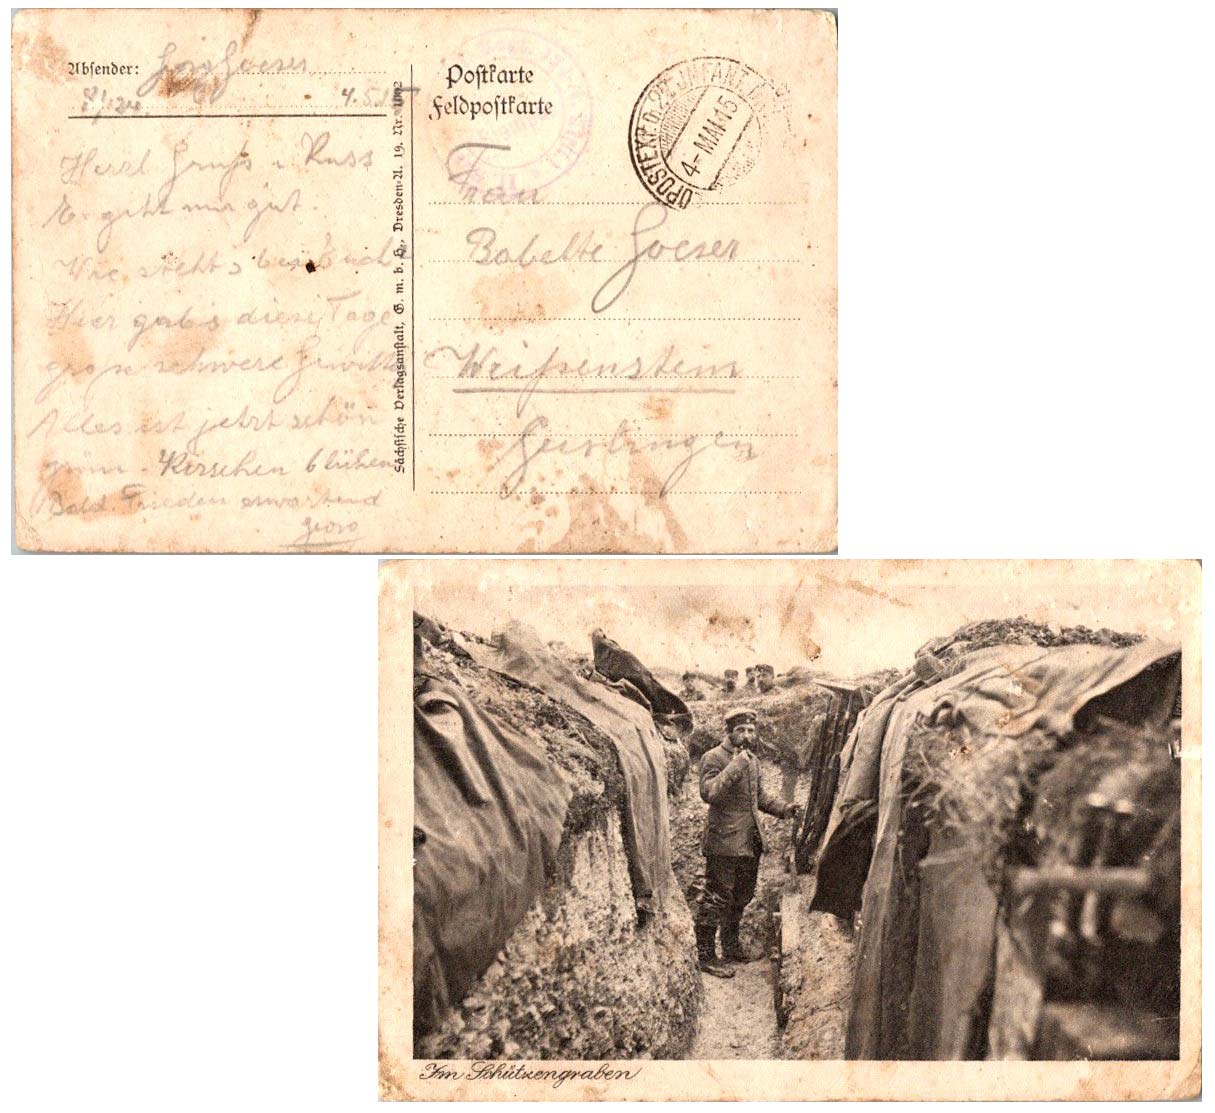 Absender: Georg Goeser
8/124 4.5.15
Herzl. Gruß u. Kuss
Es geht mir gut.
Wie stehts bei Euch
Hier gabs diese Tage
große schwere Gewitter
Alles ist jetzt schön
grün. Kirschen blühen
Bald. Frieden erwartend
Georg
Sächsische Verlagsanstalt, G. m. b. H., Dresden-A. 19. Nr.
Postkarte
Feldpostkarte
4-MAI.15
Frau
Babette Goeser
Weißenstein
Geislingen
Im Schützengraben